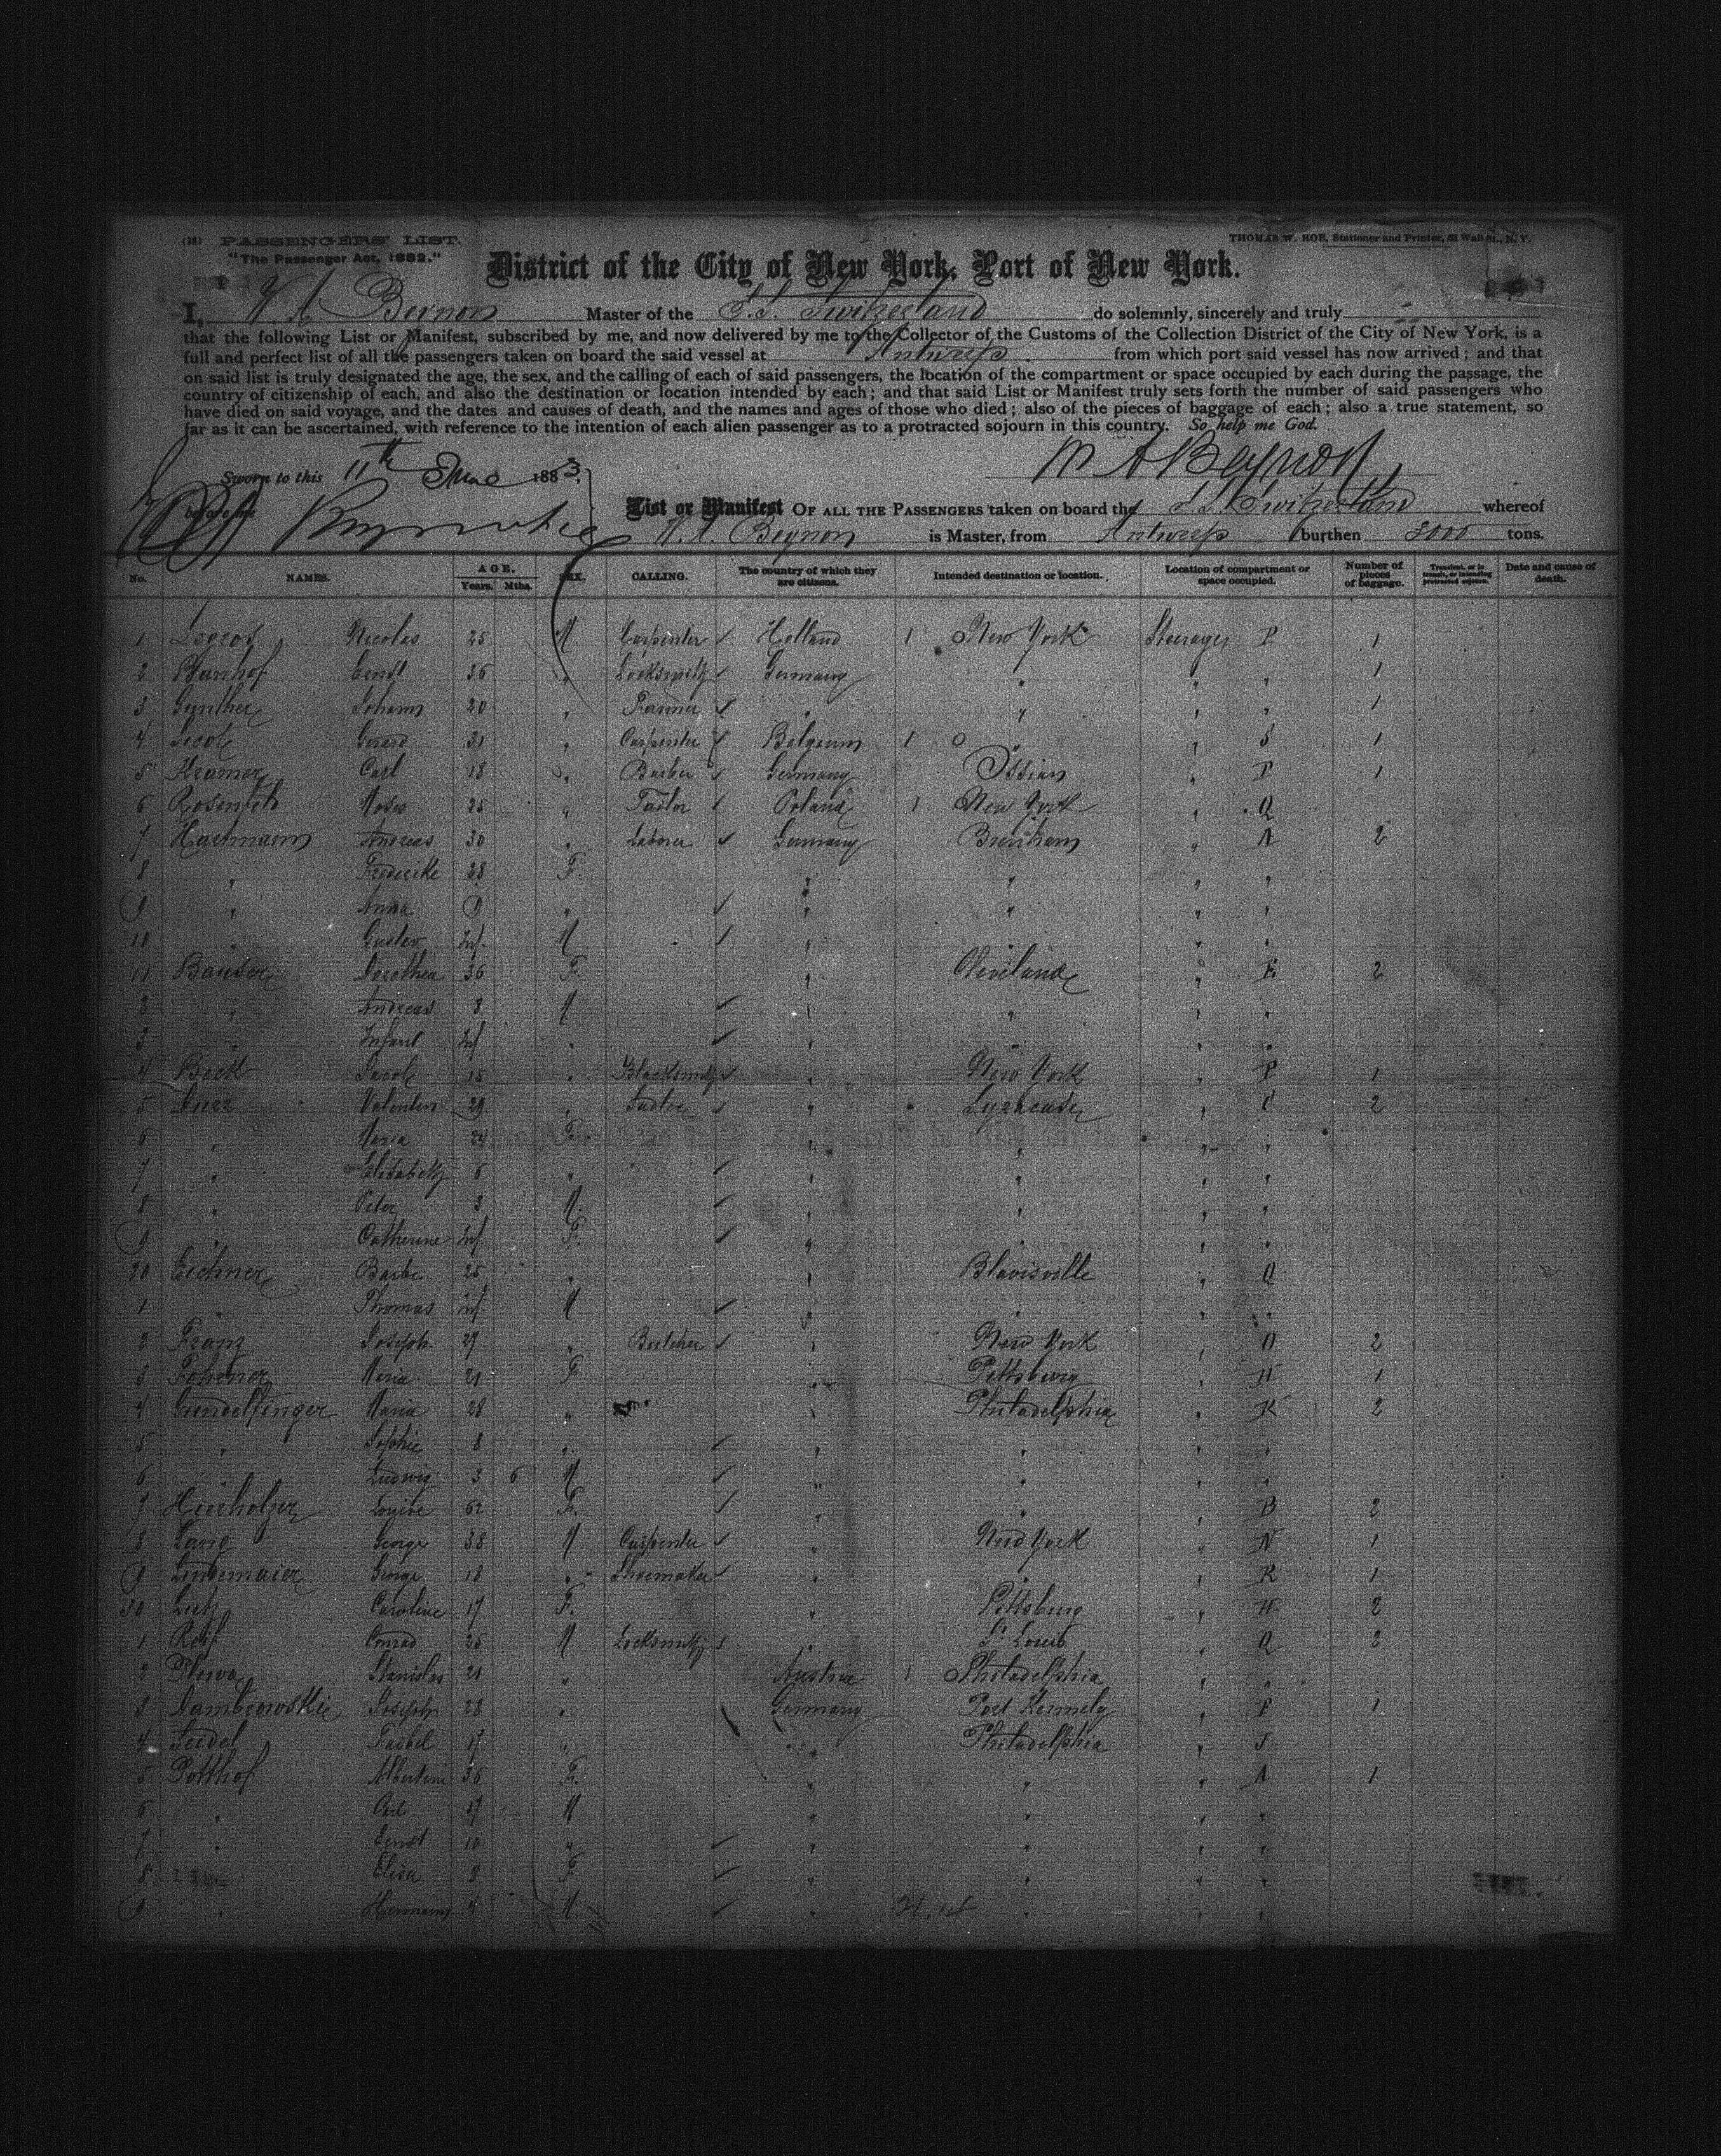 (18) PASSENGERS' LIST.
THOMAS W. HOE, Stationer and Printer, 63 Wall St., N. Y.
"The Passenger Act, 1882."
District of the City of New York, Port of New York.
I, W A Beynon Master of the S.S. Switzerland do solemnly, sincerely and truly
that the following List or Manifest, subscribed by me, and now delivered by me to the Collector of the Customs of the Collection District of the City of New York, is a
full and perfect list of all the passengers taken on board the said vessel at Antwerp from which port said vessel has now arrived; and that
on said list is truly designated the age, the sex, and the calling of each of said passengers, the location of the compartment or space occupied by each during the passage, the
country of citizenship of each, and also the destination or location intended by each; and that said List or Manifest truly sets forth the number of said passengers who
have died on said voyage, and the dates and causes of death, and the names and ages of those who died; also of the pieces of baggage of each; also a true statement, so
far as it can be ascertained, with reference to the intention of each alien passenger as to a protracted sojourn in this country. So help me God.
W A Beynon
Sworn to this 11th June 1883,
before me
List or Manifest OF ALL THE PASSENGERS taken on board the S.S. Switzerland whereof
W. A. Beynon is Master, from Antwerp burthen 3000 tons.
No. NAMES. AGE. Years. Mths. SEX. CALLING. The country of which they are citizens. Intended destination or location. Location of compartment or space occupied. Number of pieces of baggage. Transient, or in transit, or intending protracted sojourn. Date and cause of death.
1 Legros Nicolas 25 M Carpenter Holland 1 New York Steerage P 1
2 Ernst 36 " Locksmith Germany " " " 1
3 Gunther Johann 20 " Farmer " " " " 1
4 Gerard 31 " Carpenter Belgium 1 " " S 1
5 Kramer Carl 18 " Barber Germany Ossian " P 1
6 Moses 25 " Tailor Poland 1 New York " Q
7 Hartmann Andreas 30 " Laborer Germany Brenham " A 2
8 " Frederike 28 F. " " " "
9 " Anna 9 " " " " "
10 " Gustav Inf. M " " " "
11 Bauder Dorothea 36 F. " Cleveland " E 2
2 " Andreas 8 M " " " "
3 " Infant Inf " " " " "
4 Beck Jacob 15 " Blacksmith " New York " P 1
5 Valentin 29 " " Syracuse " 2
6 " Maria 24 F. " " " "
7 " Elisabeth 6 " " " " "
8 " Peter 3 M. " " " "
9 " Catherine Inf. F. " " " "
20 Eichner Barbe 25 " " " Q
1 " Thomas Inf. M " " " "
2 Franz Joseph 29 " Butcher " New York " O 2
3 Maria 21 F " Pittsburg " H 1
4 Gundelfinger Maria 28 " " Philadelphia " K 2
5 " Sophie 8 " " " " "
6 " Ludwig 3 6 M " " " "
7 Hierholzer Louise 62 F. " " " B 2
8 Lang George 38 M Carpenter " New York " N 1
9 Lindemaier George 18 " Shoemaker " " " R 1
30 Lutz Caroline 17 F. " Pittsburg " H 2
1 Conrad 25 M Locksmith " St. Louis " Q 2
2 Stanislas 21 " Austria 1 Philadelphia " "
3 Dambrowski Joseph 28 " Germany Port " P 1
4 Seidel 17 " " Philadelphia " J
5 Potthof 36 F. " " " A 1
6 " Carl 17 M " " " "
7 " Ernst 10 " " " " "
8 " Elisa 8 F " " " "
9 " Hermann 4 M. " " " "